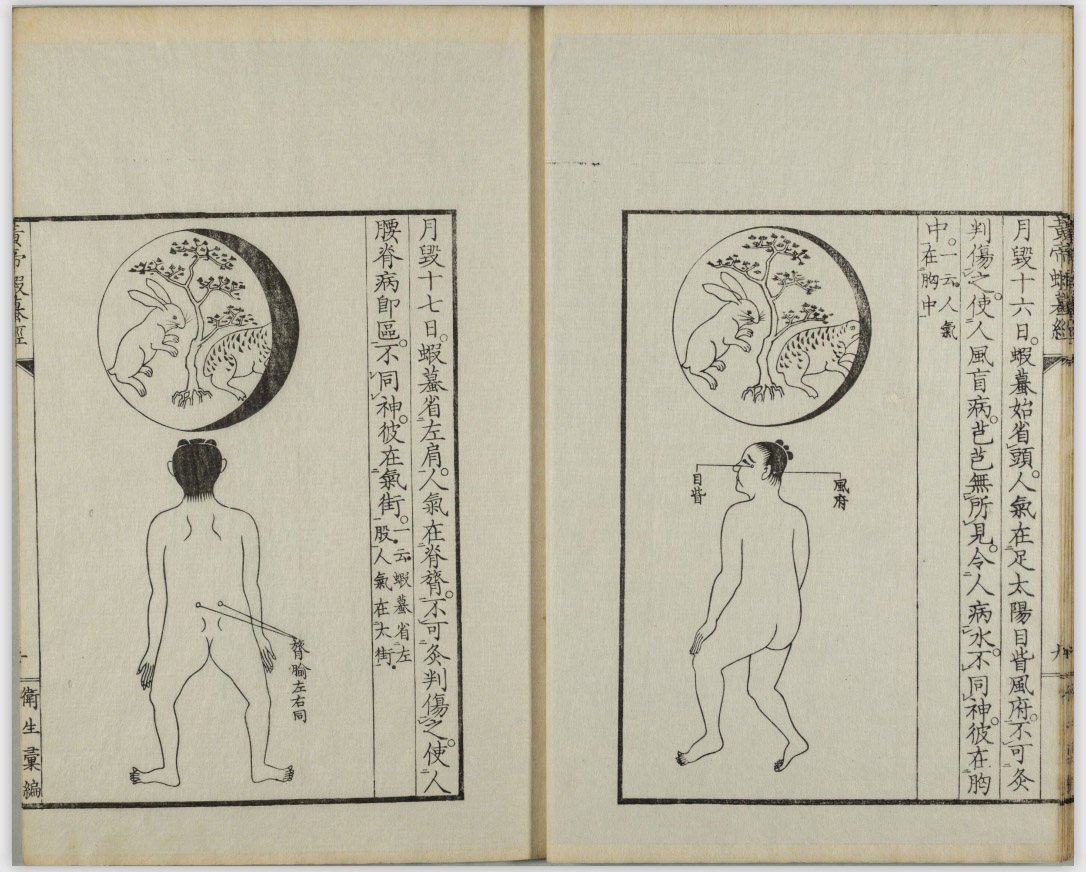 黃帝蝦蟇經
月毀十六日。蝦蟇始省頭。人氣在足太陽目眥風府。不可灸
判傷之。使人風盲病。芒芒無所見。令人病水。不同神彼在胸
中。一云人氣
在胸中
風府
目眥
月毀十七日。蝦蟇省左肩。人氣在脊膂。不可灸判傷之。使人
腰脊病卽區。不同神彼在氣街。一云蝦蟇省左
股人氣在大街
膂腧左右同
黃帝蝦蟇經
衛生彙編